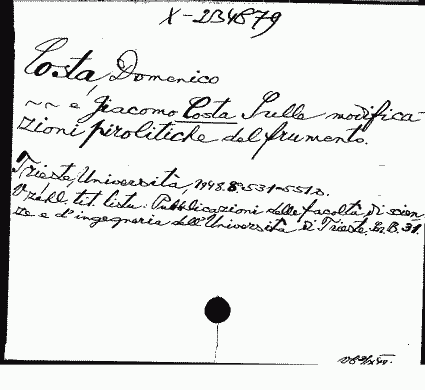 X-2B4879
Costa, Domenico
~ ~ e Giacomo Costa Sulle modifica-
zioni pirolitiche del frumento.
Trieste, Università, 1948. 8° 531-551 s.
V záhl. tit. listu: Pubblicazioni della facoltà di scien
ze e d'ingegneria dell'Università di Trieste. Ser. B. 31.